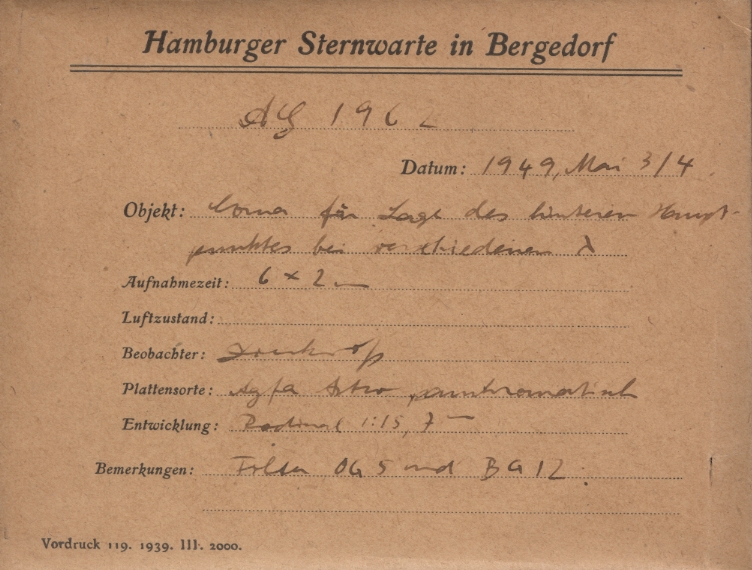 Hamburger Sternwarte in Bergedorf
AG 1962
Datum: 1949, Mai 3/4
Objekt: Coma für Lage des hinteren Haupt-
punktes bei verschiedenen λ
Aufnahmezeit: 6 × 2 m
Luftzustand:
Beobachter:
Plattensorte: Agfa Astro panchromatisch
Entwicklung: Rodinal 1:15, 7 m
Bemerkungen: Filter OG 5 und BG 12.
Vordruck 119. 1939. III. 2000.